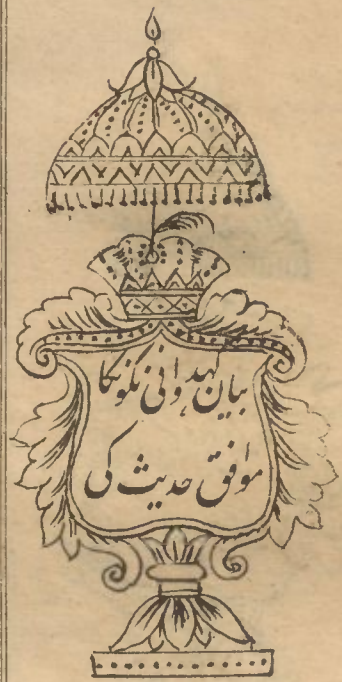 بیان کہدوانی نکونکا
موافق حدیث کی